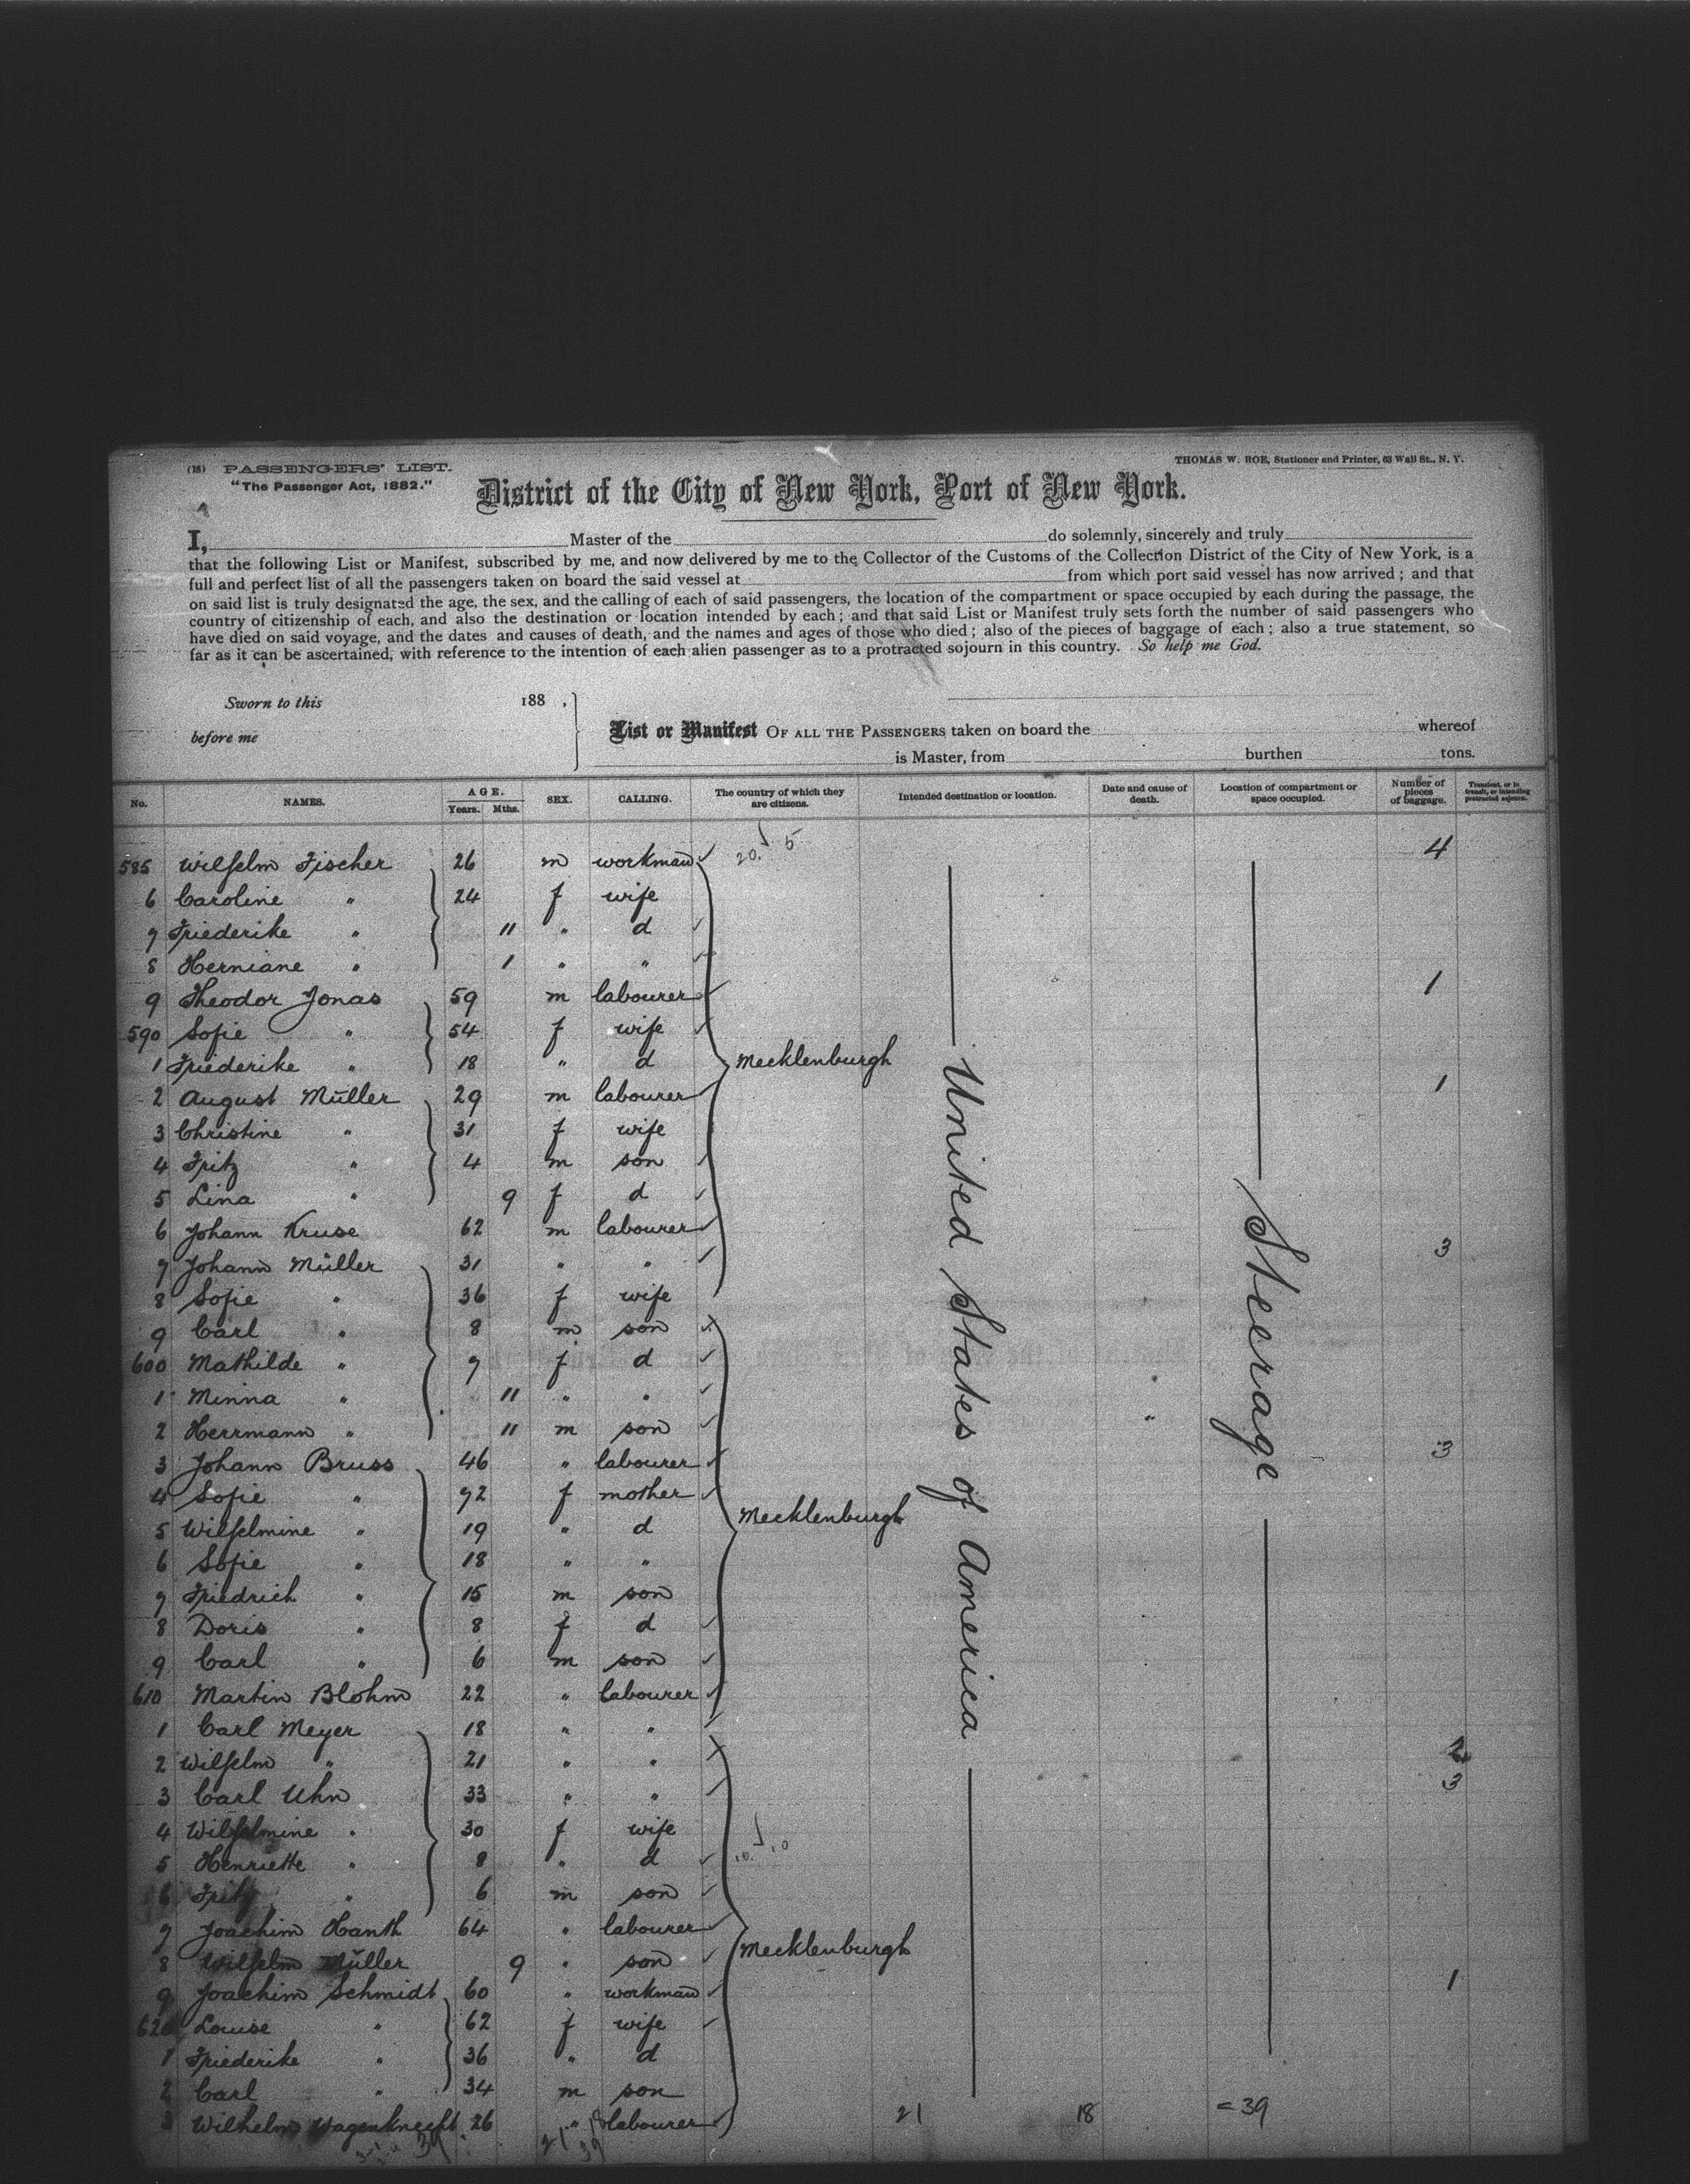 (18) PASSENGERS' LIST.
THOMAS W. ROE, Stationer and Printer, 63 Wall St., N. Y.
"The Passenger Act, 1882."
District of the City of New York, Port of New York.
I, Master of the do solemnly, sincerely and truly
that the following List or Manifest, subscribed by me, and now delivered by me to the Collector of the Customs of the Collection District of the City of New York, is a
full and perfect list of all the passengers taken on board the said vessel at from which port said vessel has now arrived; and that
on said list is truly designated the age, the sex, and the calling of each of said passengers, the location of the compartment or space occupied by each during the passage, the
country of citizenship of each, and also the destination or location intended by each; and that said List or Manifest truly sets forth the number of said passengers who
have died on said voyage, and the dates and causes of death, and the names and ages of those who died; also of the pieces of baggage of each; also a true statement, so
far as it can be ascertained, with reference to the intention of each alien passenger as to a protracted sojourn in this country. So help me God.
Sworn to this 188 ,
before me
List or Manifest OF ALL THE PASSENGERS taken on board the whereof
is Master, from burthen tons.
No. NAMES. AGE. Years. Mths. SEX. CALLING. The country of which they are citizens. Intended destination or location. Date and cause of death. Location of compartment or space occupied. Number of pieces of baggage. Transient, or in transit, or intending protracted sojourn.
20. 5
585 Wilhelm Fischer 26 m workman 4
6 Caroline " 24 f wife
7 Friederike " 11 " d
8 Herniane " 1 " "
9 Theodor Jonas 59 m labourer 1
590 Sofie " 54 f wife
1 Friederike " 18 " d Mecklenburgh
2 August Müller 29 m labourer 1
3 Christine " 31 f wife
4 Fritz " 4 m son
5 Lina " 9 f d
6 Johann Kruse 62 m labourer
7 Johann Müller 31 " " 3
8 Sofie " 36 f wife
9 Carl " 8 m son
600 Mathilde " 7 f d
1 Minna " 11 " "
2 Herrmann " 11 m son
3 Johann Bruss 46 " labourer 3
4 Sofie " 72 f mother
5 Wilhelmine " 19 " d Mecklenburgh
6 Sofie " 18 " "
7 Friedrich " 15 m son
8 Doris " 8 f d
9 Carl " 6 m son
610 Martin Blohm 22 " labourer
1 Carl Meyer 18 " "
2 Wilhelm " 21 " " 2
3 Carl Uhn 33 " " 3
4 Wilhelmine " 30 f wife
5 Henriette " 8 " d 10. 10
6 Fritz " 6 m son
7 Joachim Hanth 64 " labourer
8 Wilhelm Müller 9 " son Mecklenburgh
9 Joachim Schmidt 60 " workman 1
620 Louise " 62 f wife
1 Friederike " 36 " d
2 Carl " 34 m son
3 Wilhelm Wagenknecht 26 " labourer
United States of America
Steerage
21 18 = 39